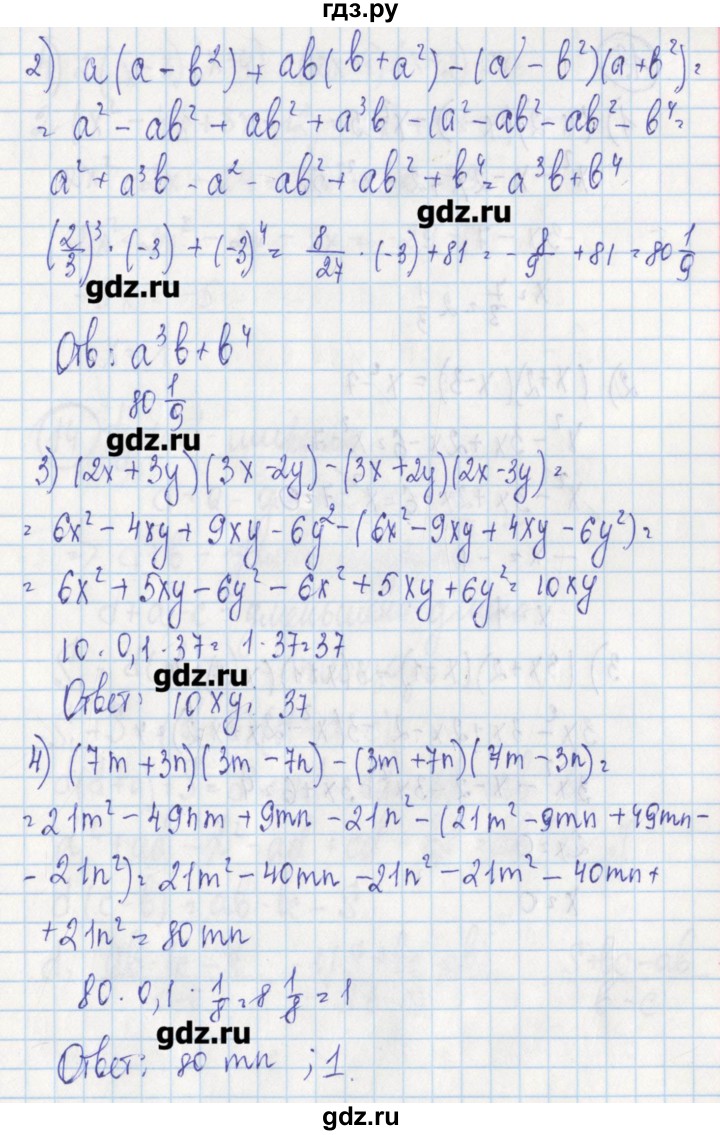 гдз.ру
2) a(a - b²) + ab(b + a²) - (a - b²)(a + b²) =
= a² - ab² + ab² + a³b - (a² - ab² - ab² - b⁴ =
a² + a³b - a² - ab² + ab² + b⁴ = a³b + b⁴
gdz.ru
(2/3)³ · (-3) + (-3)⁴ = 8/27 · (-3) + 81 = - 8/9 + 81 = 80 1/9
gdz.ru
Отв: a³b + b⁴
80 1/9
gdz.ru
3) (2x + 3y)(3x - 2y) - (3x + 2y)(2x - 3y) =
= 6x² - 4xy + 9xy - 6y² - (6x² - 9xy + 4xy - 6y²) =
= 6x² + 5xy - 6y² - 6x² + 5xy + 6y² = 10xy
10 · 0,1 · 37 = 1 · 37 = 37
gdz.ru
Ответ: 10xy; 37
4) (7m + 3n)(3m - 7n) - (3m + 7n)(7m - 3n) =
= 21m² - 49nm + 9mn - 21n² - (21m² - 9mn + 49mn -
- 21n²) = 21m² - 40mn - 21n² - 21m² - 40mn +
+ 21n² = 80mn
80 · 0,1 · 1/8 = 8 1/8 = 1
gdz.ru
Ответ: 80 mn ; 1.
gdz.ru